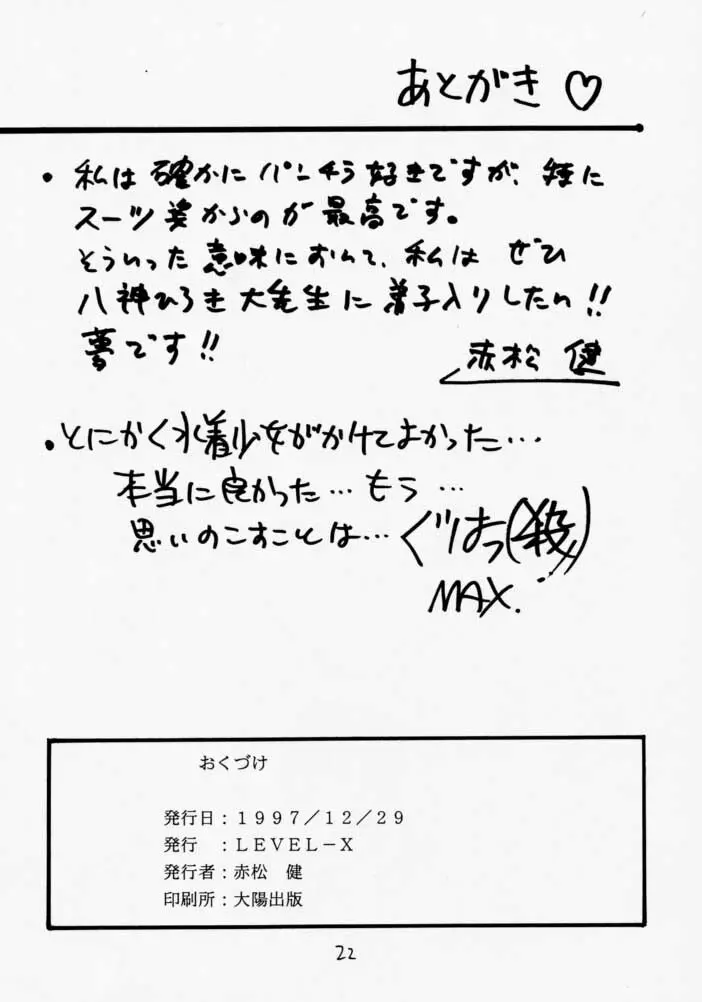 あとがき♡
・私は確かにパンチラ好きですが、特に
スーツ姿からのが最高です。
そういった意味において、私は ぜひ
八神ひろき大先生に弟子入りしたい!!
夢です!!
赤松 健
・とにかく水着少女がかけてよかった…
本当に良かった…もう…
思いのこすことは…ぐはっ(殺)
MAX.
おくづけ
発行日：１９９７／１２／２９
発行　：ＬＥＶＥＬ－Ｘ
発行者：赤松　健
印刷所：大陽出版
22